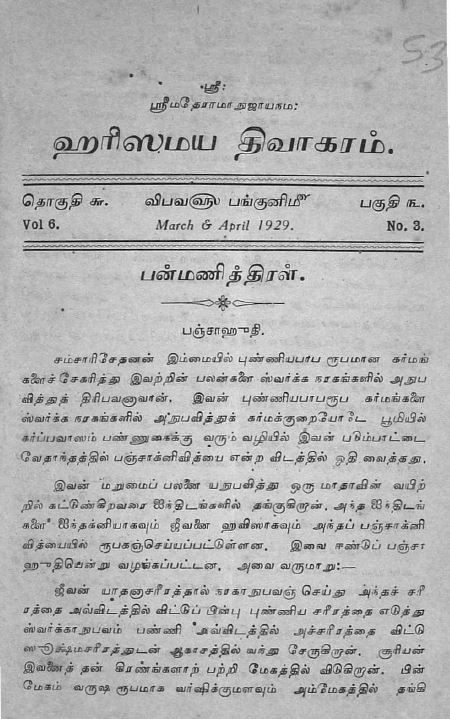 53
ஸ்ரீ:
ஸ்ரீமதேராமாநுஜாயநம:
ஹரிஸமய திவாகரம்.
தொகுதி ௬. விபவளு பங்குனிமீ பகுதி ௩.
Vol 6. March & April 1929. No. 3.
பன்மணித்திரள்.
பஞ்சாஹுதி.
சம்சாரிசேதனன் இம்மையில் புண்ணியபாப ரூபமான கர்மங்
களைச் சேகரித்து இவற்றின் பலன்களை ஸ்வர்க்க நரகங்களில் அநுப
வித்துத் திரிபவனாவான். இவன் புண்ணியபாபரூப கர்மங்களை
ஸ்வர்க்க நரகங்களில் அநுபவித்துக் கர்மக்குறையோடே பூமியில்
கர்ப்பவாஸம் பண்ணுகைக்கு வரும் வழியில் இவன் படும்பாட்டை
வேதாந்தத்தில் பஞ்சாக்னிவித்யை என்ற விடத்தில் ஓதி வைத்தது.
இவன் மறுமைப் பலனை யநுபவித்து ஒரு மாதாவின் வயிற்
றில் கட்டுண்கிறவரை ஐந்திடங்களில் தங்குகிறான். அந்த ஐந்திடங்
களை ஐந்தக்னியாகவும் ஜீவனை ஹவிஸாகவும் அந்தப் பஞ்சாக்னி
வித்யையில் ரூபகஞ்செய்யப்பட்டுள்ளன. இவை ஈண்டுப் பஞ்சா
ஹுதியென்று வழங்கப்பட்டன. அவை வருமாறு:—
ஜீவன் யாதனாசரீரத்தால் நரகாநுபவஞ் செய்து அந்தச் சரீ
ரத்தை அவ்விடத்தில் விட்டுப் பின்பு புண்ணிய சரீரத்தை எடுத்து
ஸ்வர்க்காநுபவம் பண்ணி அவ்விடத்தில் அச்சரீரத்தை விட்டு
ஸூக்ஷ்மசரீரத்துடன் ஆகாசத்தில் வந்து சேருகிறான். சூரியன்
இவனைத் தன் கிரணங்களாற் பற்றி மேகத்தில் விடுகிறான். பின்
மேகம் வருஷ ரூபமாக வர்ஷிக்குமளவும் அம்மேகத்தில் தங்கி